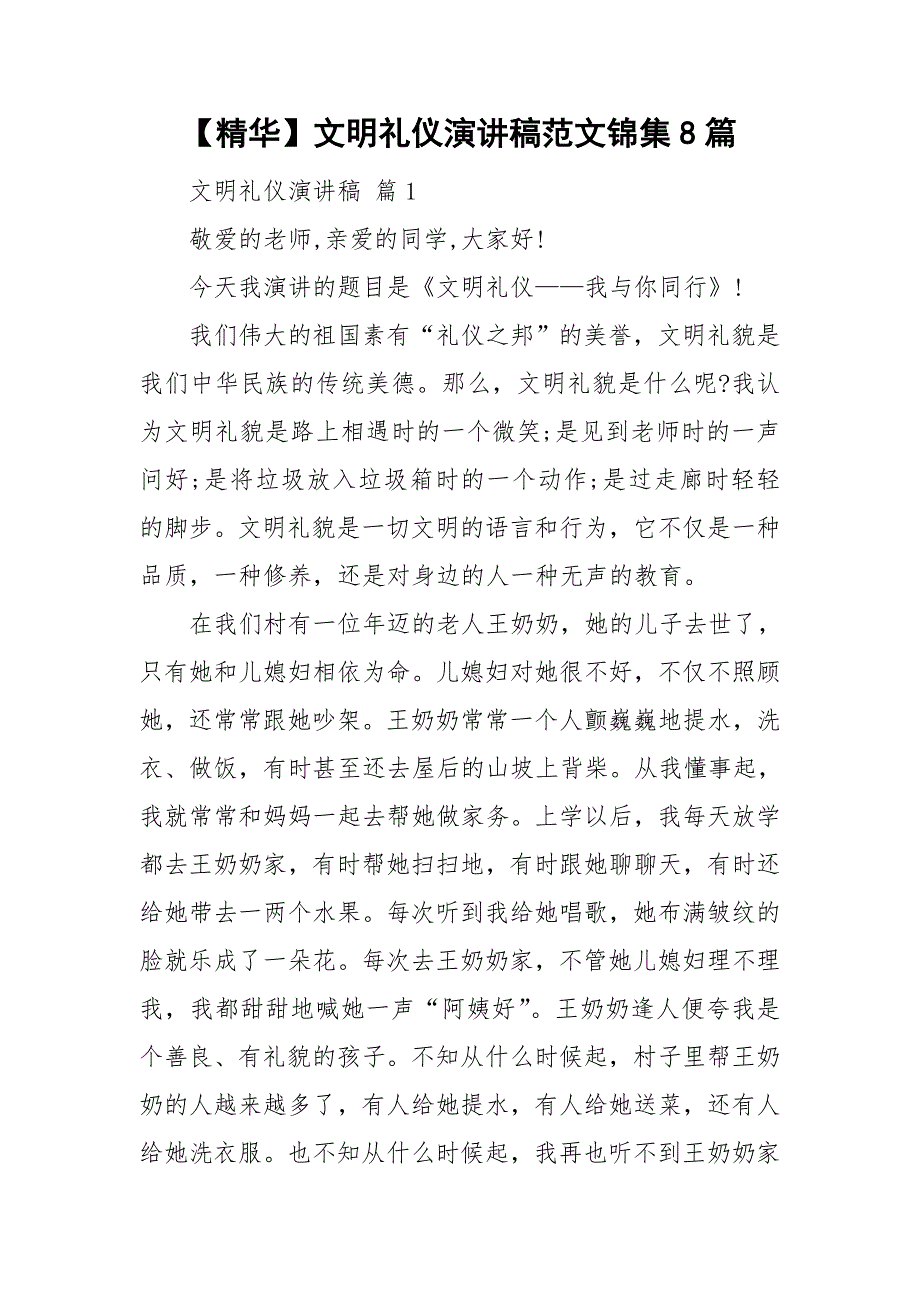 【精华】文明礼仪演讲稿范文锦集8篇
文明礼仪演讲稿 篇1
敬爱的老师,亲爱的同学,大家好!
今天我演讲的题目是《文明礼仪——我与你同行》!
我们伟大的祖国素有“礼仪之邦”的美誉，文明礼貌是
我们中华民族的传统美德。那么，文明礼貌是什么呢?我认
为文明礼貌是路上相遇时的一个微笑;是见到老师时的一声
问好;是将垃圾放入垃圾箱时的一个动作;是过走廊时轻轻
的脚步。文明礼貌是一切文明的语言和行为，它不仅是一种
品质，一种修养，还是对身边的人一种无声的教育。
在我们村有一位年迈的老人王奶奶，她的儿子去世了，
只有她和儿媳妇相依为命。儿媳妇对她很不好，不仅不照顾
她，还常常跟她吵架。王奶奶常常一个人颤巍巍地提水，洗
衣、做饭，有时甚至还去屋后的山坡上背柴。从我懂事起，
我就常常和妈妈一起去帮她做家务。上学以后，我每天放学
都去王奶奶家，有时帮她扫扫地，有时跟她聊聊天，有时还
给她带去一两个水果。每次听到我给她唱歌，她布满皱纹的
脸就乐成了一朵花。每次去王奶奶家，不管她儿媳妇理不理
我，我都甜甜地喊她一声“阿姨好”。王奶奶逢人便夸我是
个善良、有礼貌的孩子。不知从什么时候起，村子里帮王奶
奶的人越来越多了，有人给她提水，有人给她送菜，还有人
给她洗衣服。也不知从什么时候起，我再也听不到王奶奶家